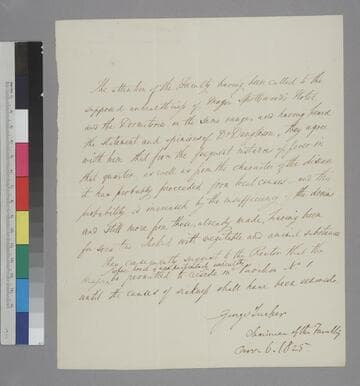 The attention of the Faculty having been called to the
supposed unhealthiness of Major Spotswood's Hotel
and the Dormitories in the same range, and having heard
the statement and opinions of Dr Dunglison, they agree
with him that from the frequent instances of fever in
that quarter, as well as from the character of the disease
it has probably proceeded from local causes and this
probability is increased by the insufficiency of the drains
and still more from those already made, having been
for some time choked with vegetable and animal substances
they consequently suggest to the Proctor that the
be permitted to reside in Pavilion No 1
until the causes of sickness shall have been removed.
George Tucker
Chairman of the Faculty
6. 1825.